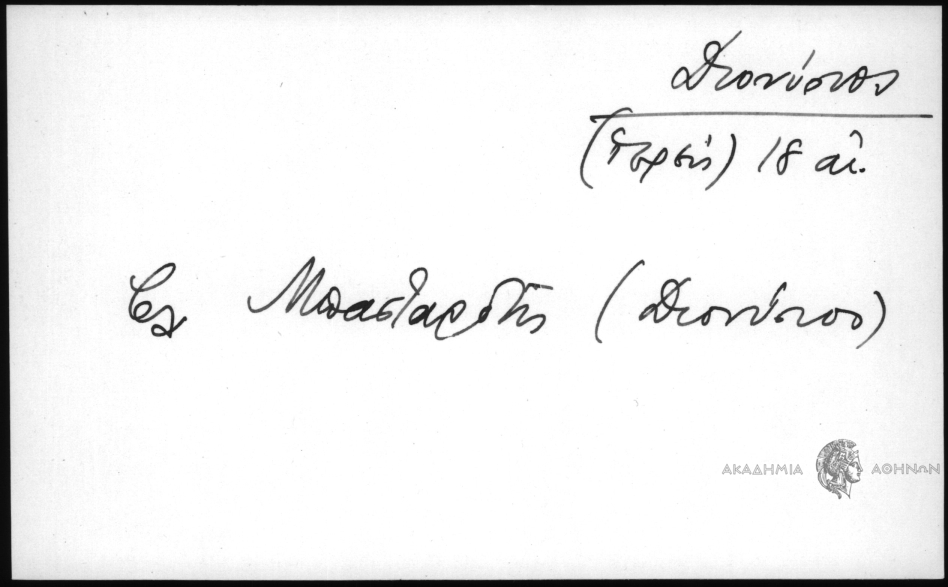 Διονύσιος
(Ἱερεύς) 18 αἰ.
βλ Μπασταρδῆς (Διονύσιος)
ΑΚΑΔΗΜΙΑ ΑΘΗΝΩΝ